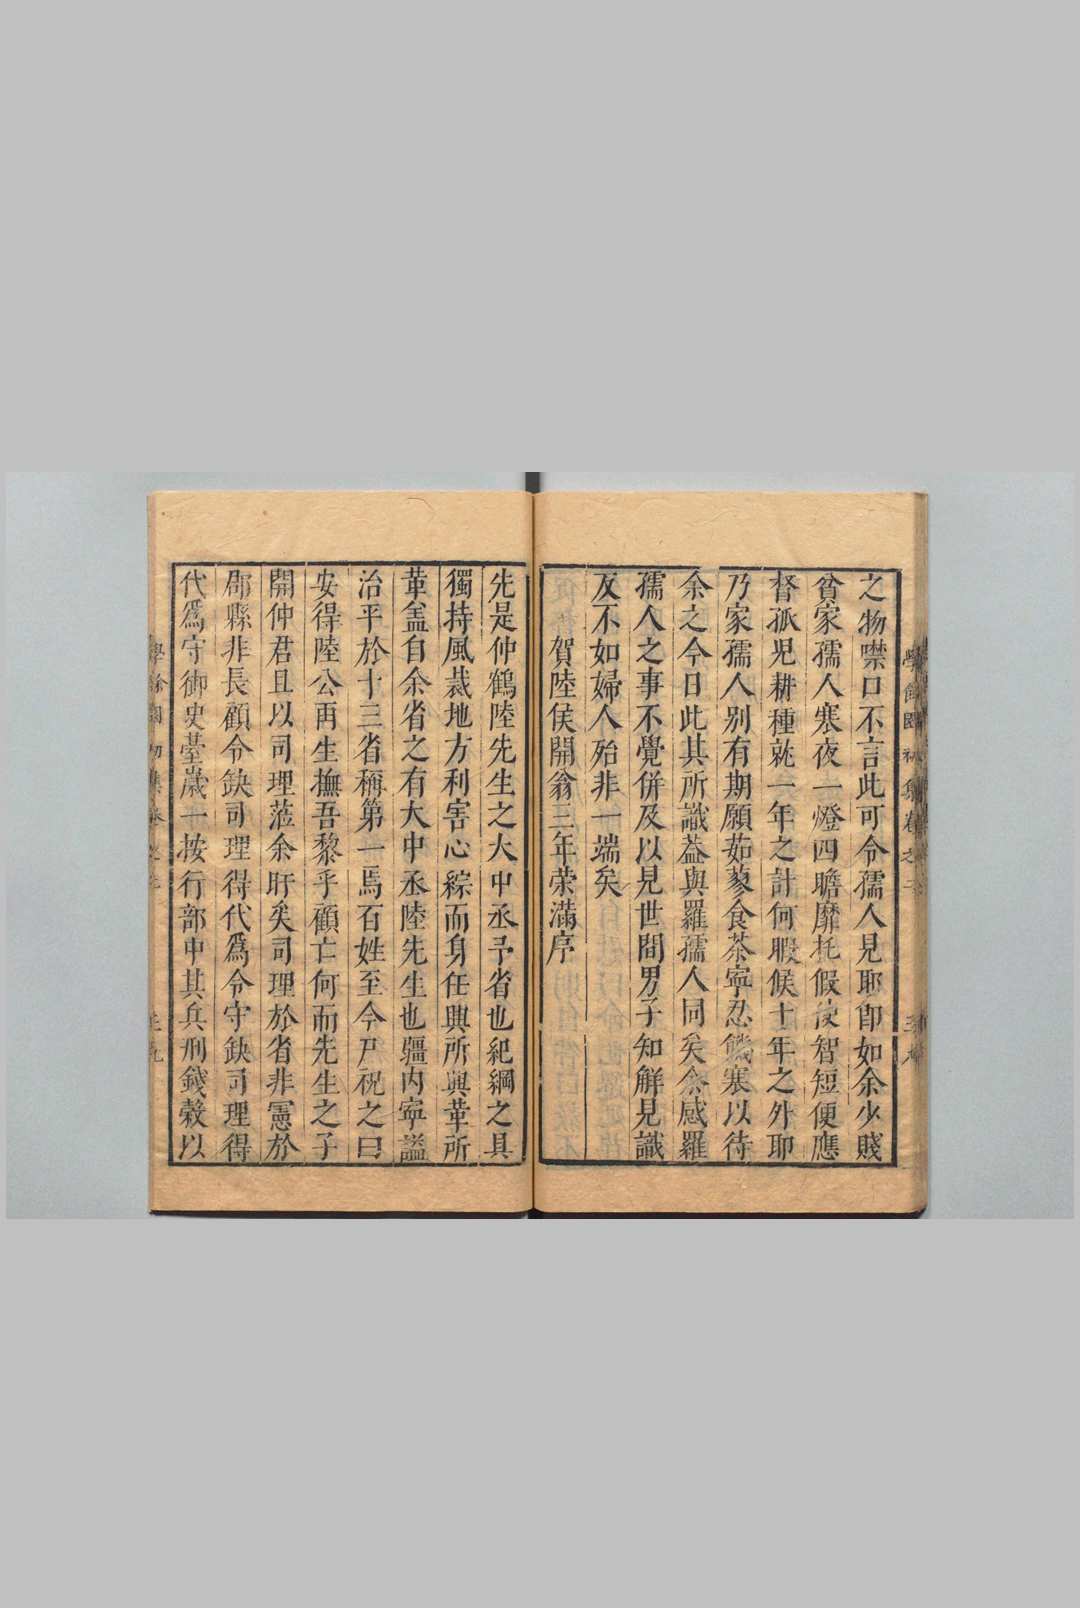 之物噤口不言此可令孺人見耶卽如余少賤
貧家孺人寒夜一燈四瞻靡托假使智短便應
督孤兒耕種就一年之計何暇候十年之外耶
乃家孺人别有期願茹蓼食荼寧忍饑寒以待
余之今日此其所識葢與羅孺人同矣余感羅
孺人之事不覺併及以見世間男子知解見識
反不如婦人殆非一端矣
賀陸侯開翁三年榮滿序
先是仲鶴陸先生之大中丞予省也紀綱之具
獨持風裁地方利害心綜而身任興所興革所
革盖自余省之有大中丞陸先生也疆內寧謐
治平於十三省稱第一焉百姓至今尸祝之曰
安得陸公再生撫吾黎乎顧亡何而先生之子
開仲君且以司理蒞余盱矣司理於省非憲於
郡縣非長顧令缺司理得代爲令守缺司理得
代爲守御史臺歲一按行部中其兵刑錢榖以